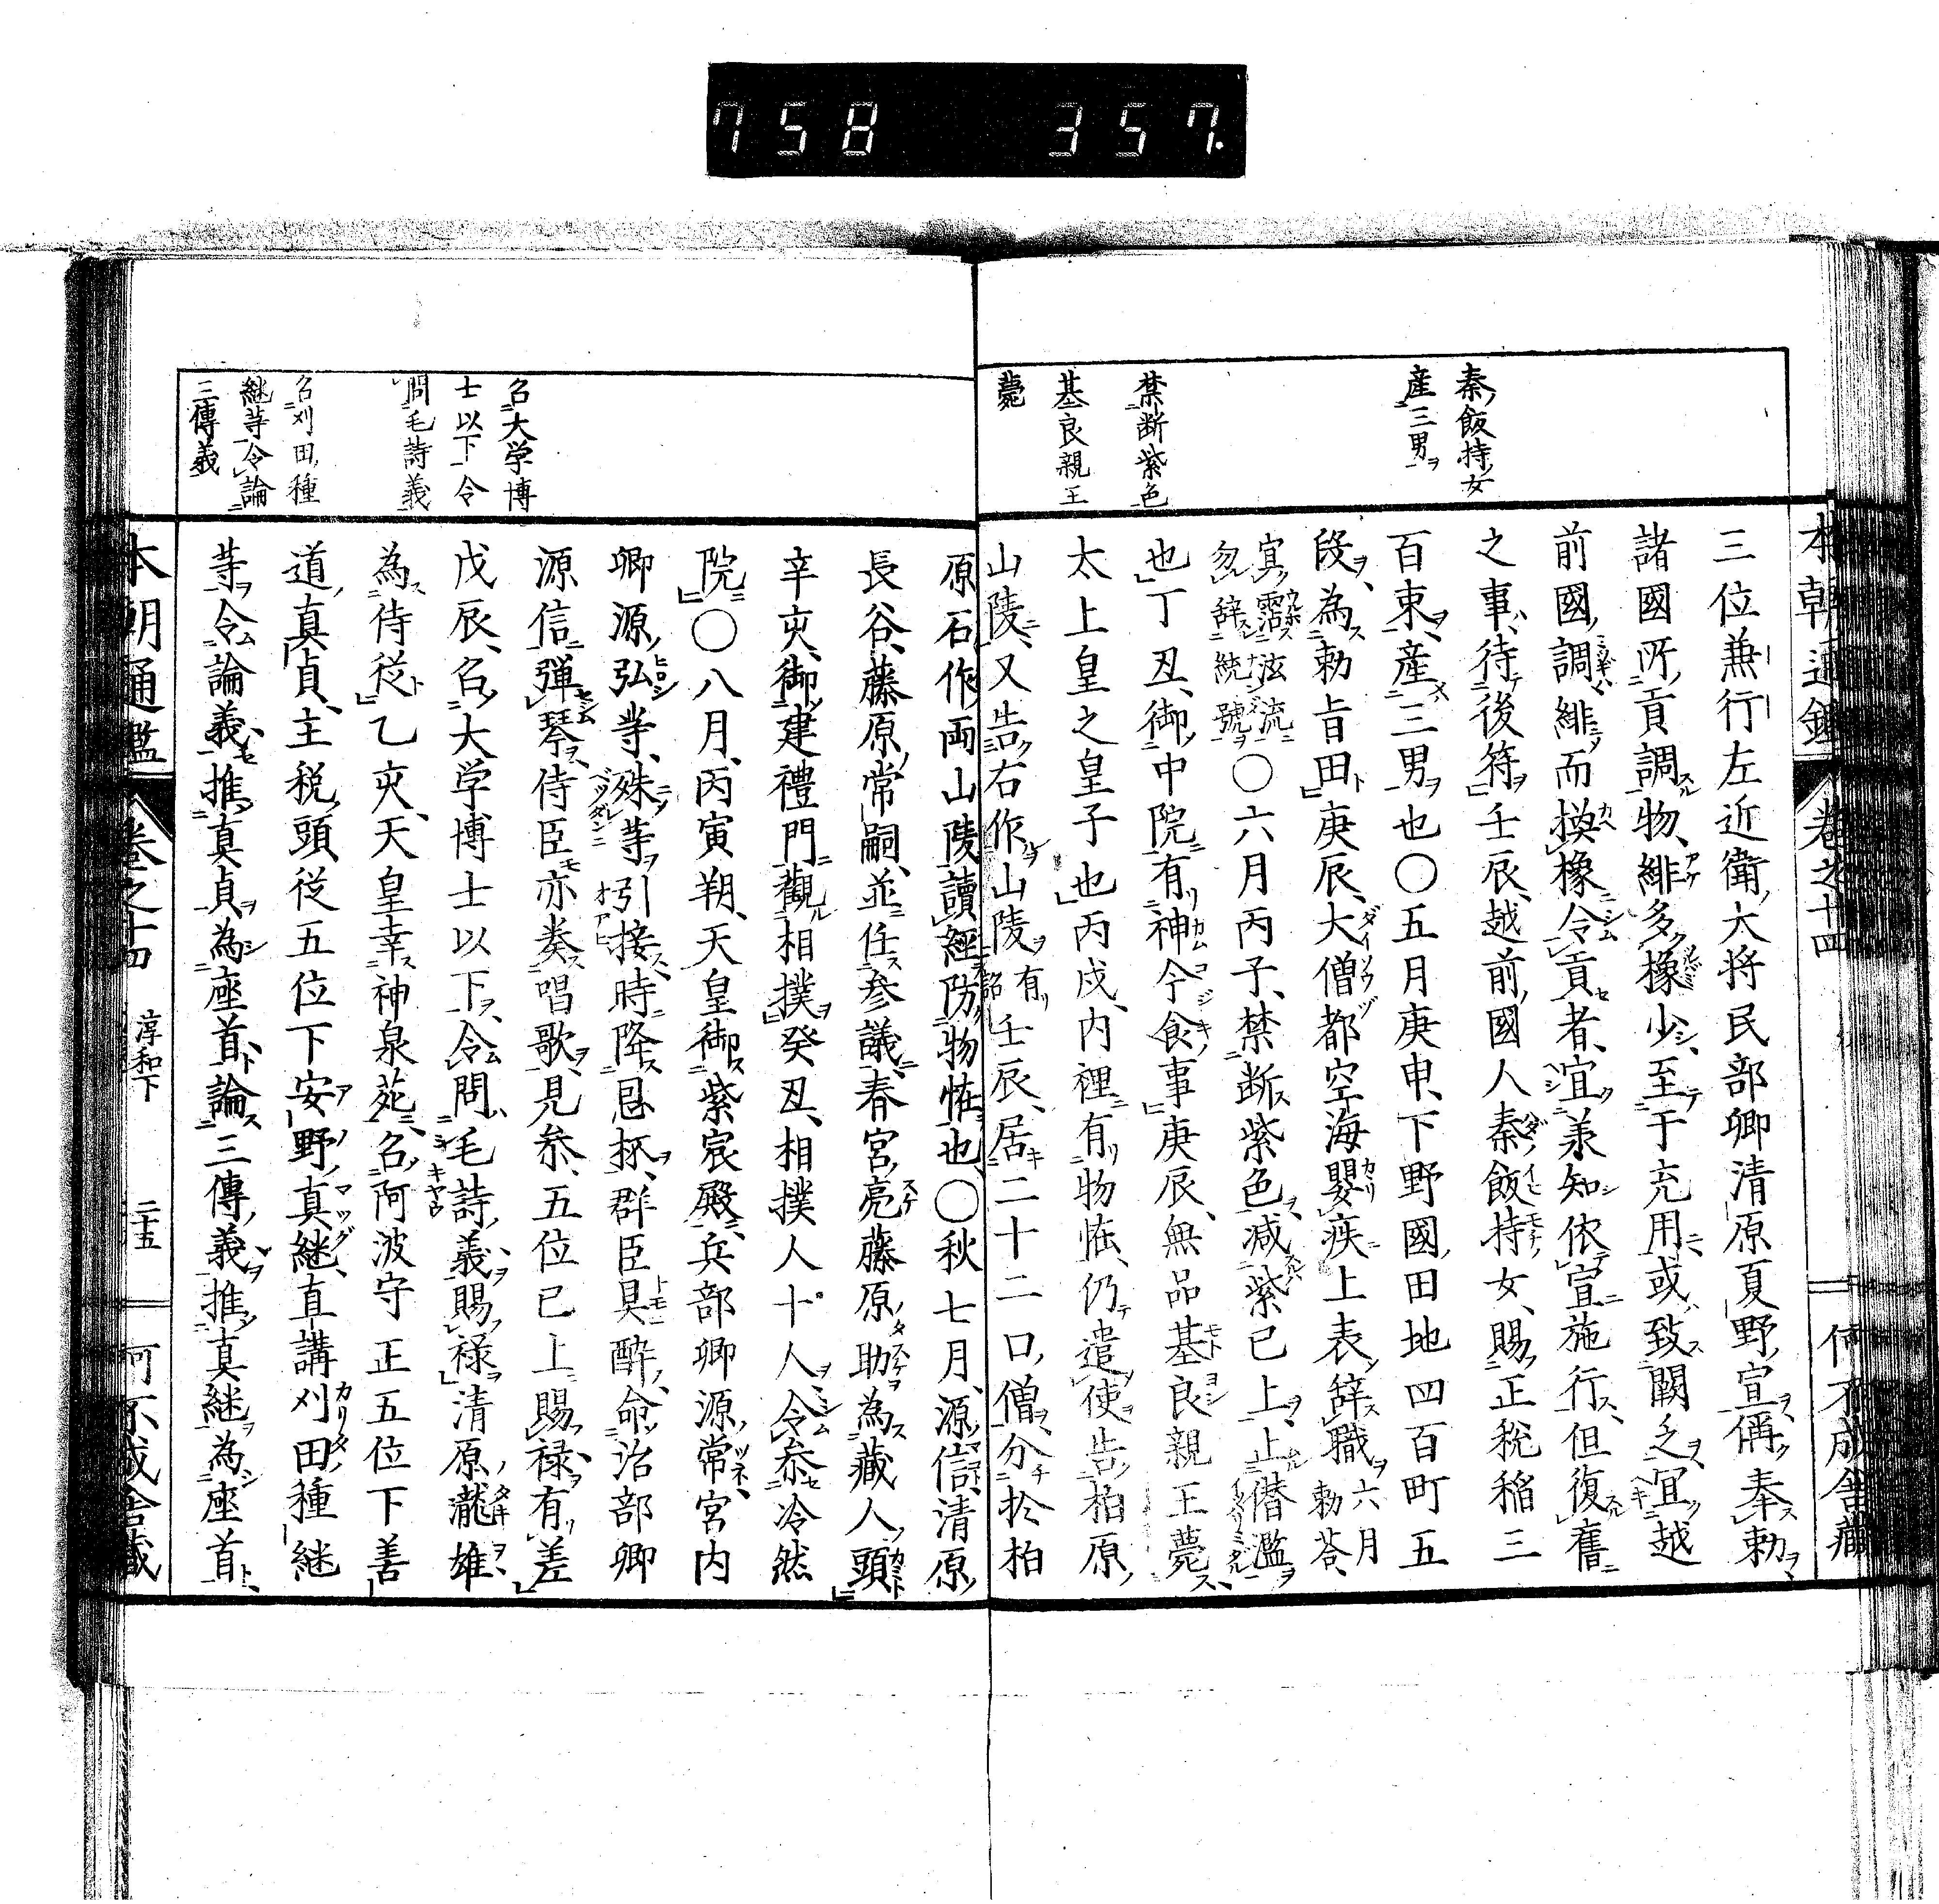 758 357.
本朝通鑑 卷之十四 何不成舍藏
秦飯持女
産三男
禁断紫色
基良親王
薨
三位兼行左近衛大将民部卿清原夏野宣偁奉勅
諸國所貢調物緋多橡少至于充用或致闕乏宜越
前國調緋而換橡令貢者宜羕知依宣施行但復舊
之事待後符壬辰越前國人秦飯持女賜正税稲三
百束産三男也〇五月庚申下野國田地四百町五
段為勅旨田庚辰大僧都空海嬰疾上表辞職六月勅荅
宜霑泫流
忽辞綂號〇六月丙子禁断紫色減紫已上止僣濫
也丁丑御中院有神今食事庚辰無品基良親王薨
太上皇之皇子也丙戌内裡有物恠仍遣使告柏原
山陵又告右作山陵有詔壬辰居二十二口僧分於柏
召大学博
士以下令
問毛詩義
召刈田種
継䓁令論
三傳義
原石作両山陵讀經防物恠也〇秋七月源信清原
長谷藤原常嗣並任参議春宮亮藤原助為藏人頭
辛亥御建禮門觀相撲癸丑相撲人十人令叅冷然
院〇八月丙寅朔天皇御紫宸殿兵部卿源常宮内
卿源弘䓁殊䓁引接時降恩抔群臣具醉命治部卿
源信弾琴侍臣亦奏唱歌見叅五位已上賜禄有差
戊辰召大学博士以下令問毛詩義賜禄清原瀧雄
為侍従乙亥天皇幸神泉苑召阿波守正五位下善
道真貞主税頭従五位下安野真継直講刈田種継
䓁令論義推真貞為座首論三傳義推真継為座首
本朝通鑑 卷之十四 淳和下 二十五 何不成舍藏